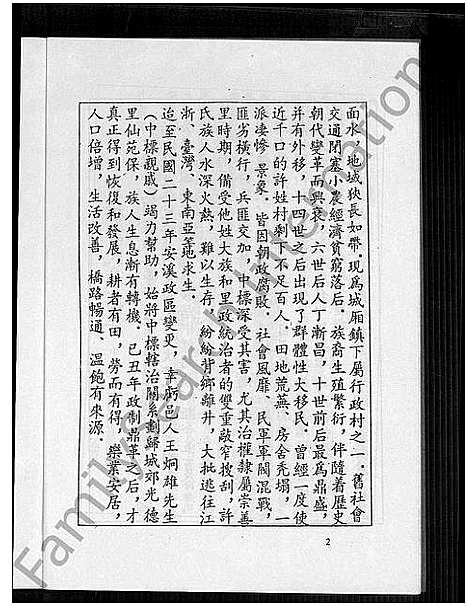 面水，地域狹長如帶．現爲城厢鎮下屬行政村之一．舊社會
交通閉塞小農經濟貧窮落后．族裔生殖繁衍，伴隨着歷史
朝代變革而興衰．六世后人丁漸昌，十世前后最爲鼎盛，
并有外移，十四世之后出現了群體性大移民．曾經一度使
近千口的許姓村剩下不足百人．田地荒蕪、房舍秃塌，一
派凄慘景象．皆因朝政腐敗、社會風靡、民軍軍閥混戰，
匪劣橫行，兵匪交加，中標深受其害，尤其治權隸屬崇善
里時期，備受他姓大族和里政統治者的雙重敲窄搜刮，許
氏族人水深火熱，難以生存，紛紛背鄉離井，大批逃往江
浙、臺灣、東南亞等地求生．
迨至民國二十三年安溪政區變更，幸虧邑人王炯雄先生
（中標親戚）竭力幫助，始將中標轄治關系劃歸城郊光德
里仙苑保．族人生息漸有轉機．己丑年政制鼎革之后，才
真正得到恢復和發展，耕者有田，勞而有得，樂業安居，
人口倍增，生活改善，橋路暢通、温飽有來源．
2